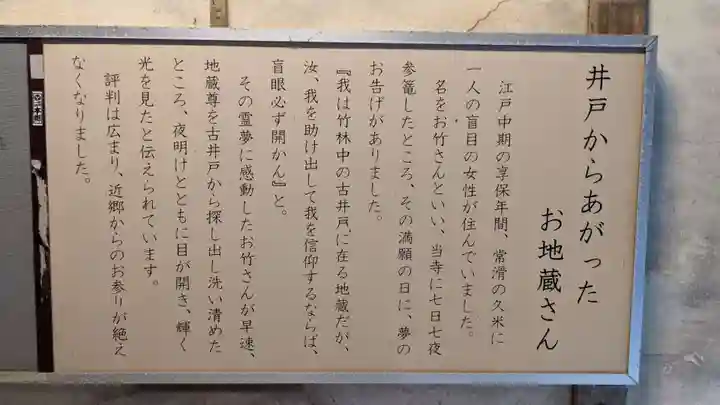 井戸からあがった
お地蔵さん
江戸中期の享保年間、常滑の久米に
一人の盲目の女性が住んでいました。
名をお竹さんといい、当寺に七日七夜
参篭したところ、その満願の日に、夢の
お告げがありました。
『我は竹林中の古井戸に在る地蔵だが、
汝、我を助け出して我を信仰するならば、
盲眼必ず開かん』と。
その霊夢に感動したお竹さんが早速、
地蔵尊を古井戸から探し出し洗い清めた
ところ、夜明けとともに目が開き、輝く
光を見たと伝えられています。
評判は広まり、近郷からのお参りが絶え
なくなりました。